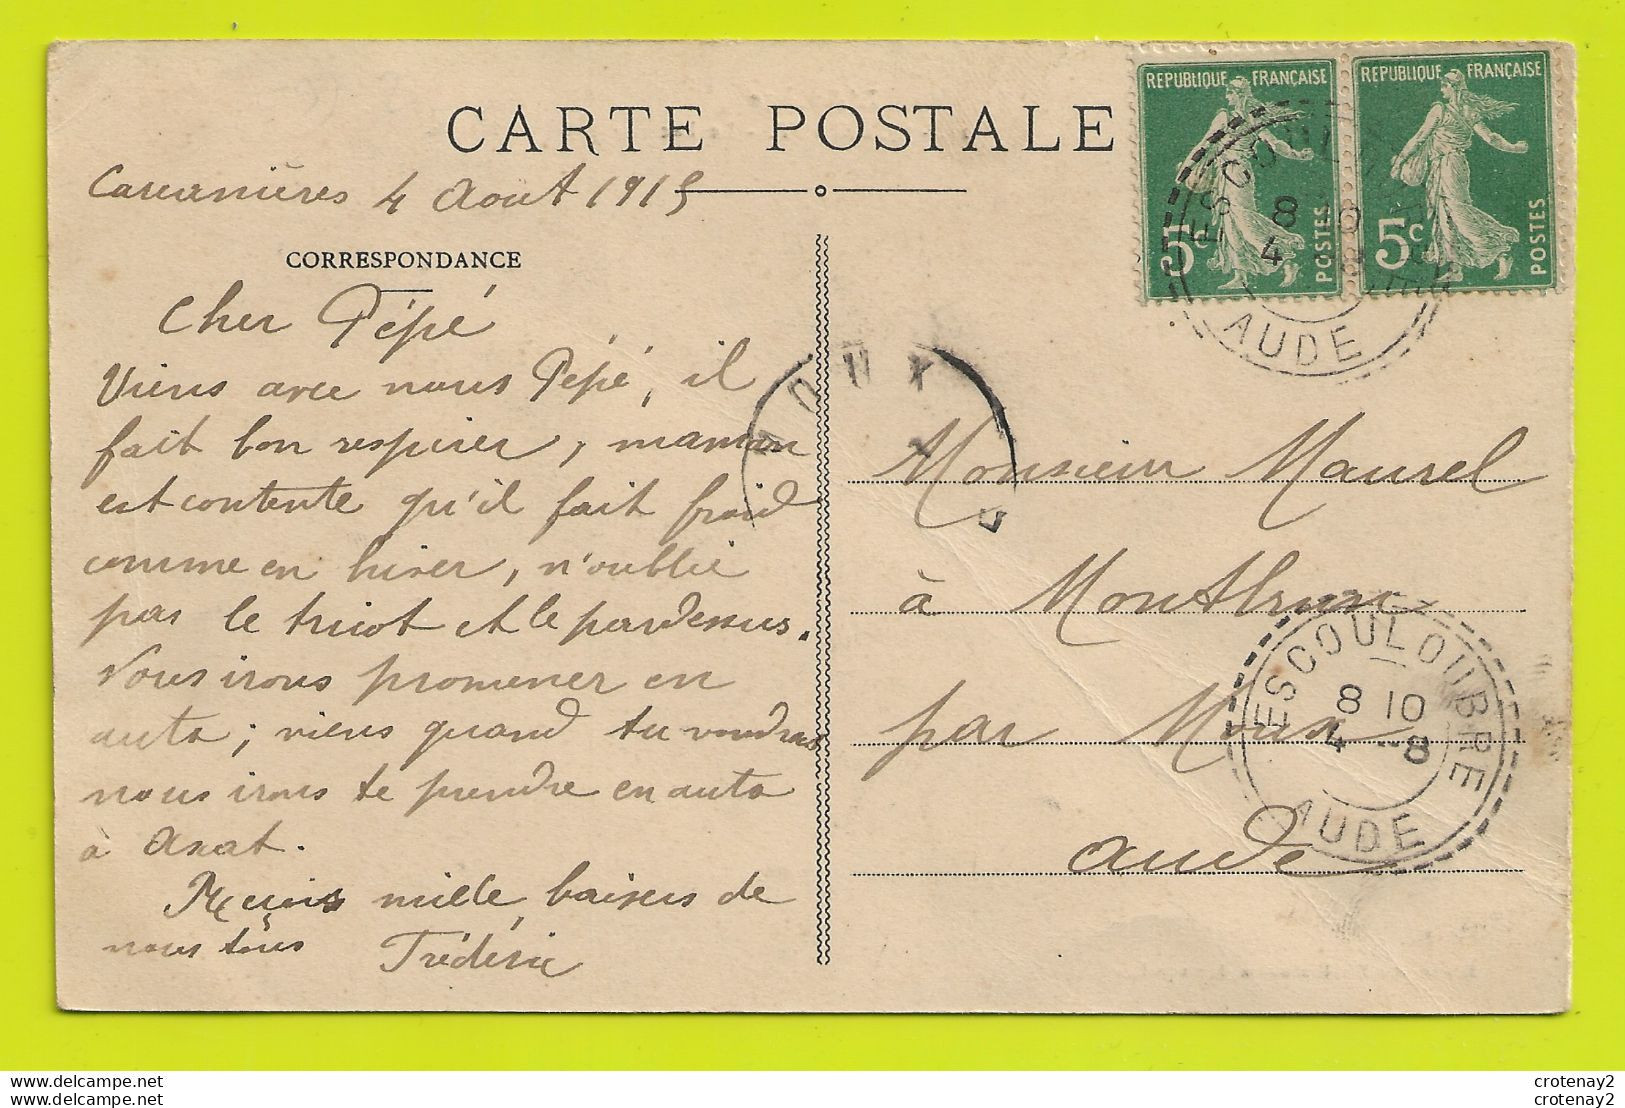 CARTE POSTALE
REPUBLIQUE FRANÇAISE
5c
POSTES
REPUBLIQUE FRANÇAISE
5c
POSTES
ESCOULOUBRE
8 10
4
AUDE
Carcanières 4 Aout 1915
CORRESPONDANCE
Cher Pépé
Viens avec nous Pépé, il
fait bon respirer, maman
est contente qu'il fait froid
comme en hiver, n'oublie
pas le tricot et le pardessus.
Nous irons promener en
auto; viens quand tu voudras
nous irons te prendre en auto
à Axat.
mille baisers de
nous tous Frédéric
MOUX
Monsieur Maurel
à Montbrun
par Moux
Aude
ESCOULOUBRE
8 10
4 -8
AUDE
crotenay2.delcampe.net
crotenay2.delcampe.net
crotenay2
crotenay2